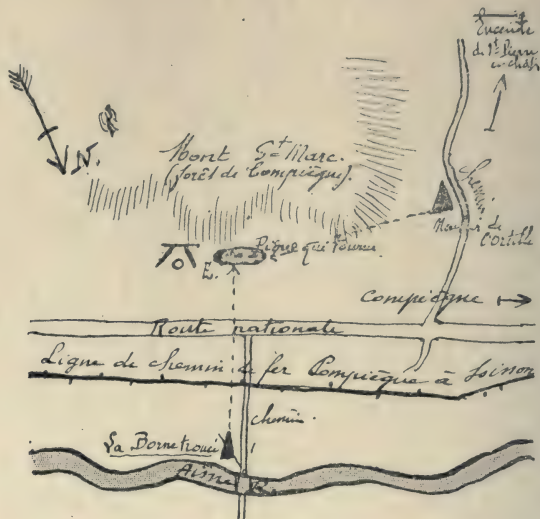 Enceinte
de St Pierre
en chast
N.
Mont St Marc.
(forêt de Compiègne).
Chemin.
Menhir de
l'Ortille
Pierre qui tourne
E.
Compiègne
Route nationale
Ligne de chemin de fer Compiègne à Soissons
chemin.
La Borne trouée
Aisne R.